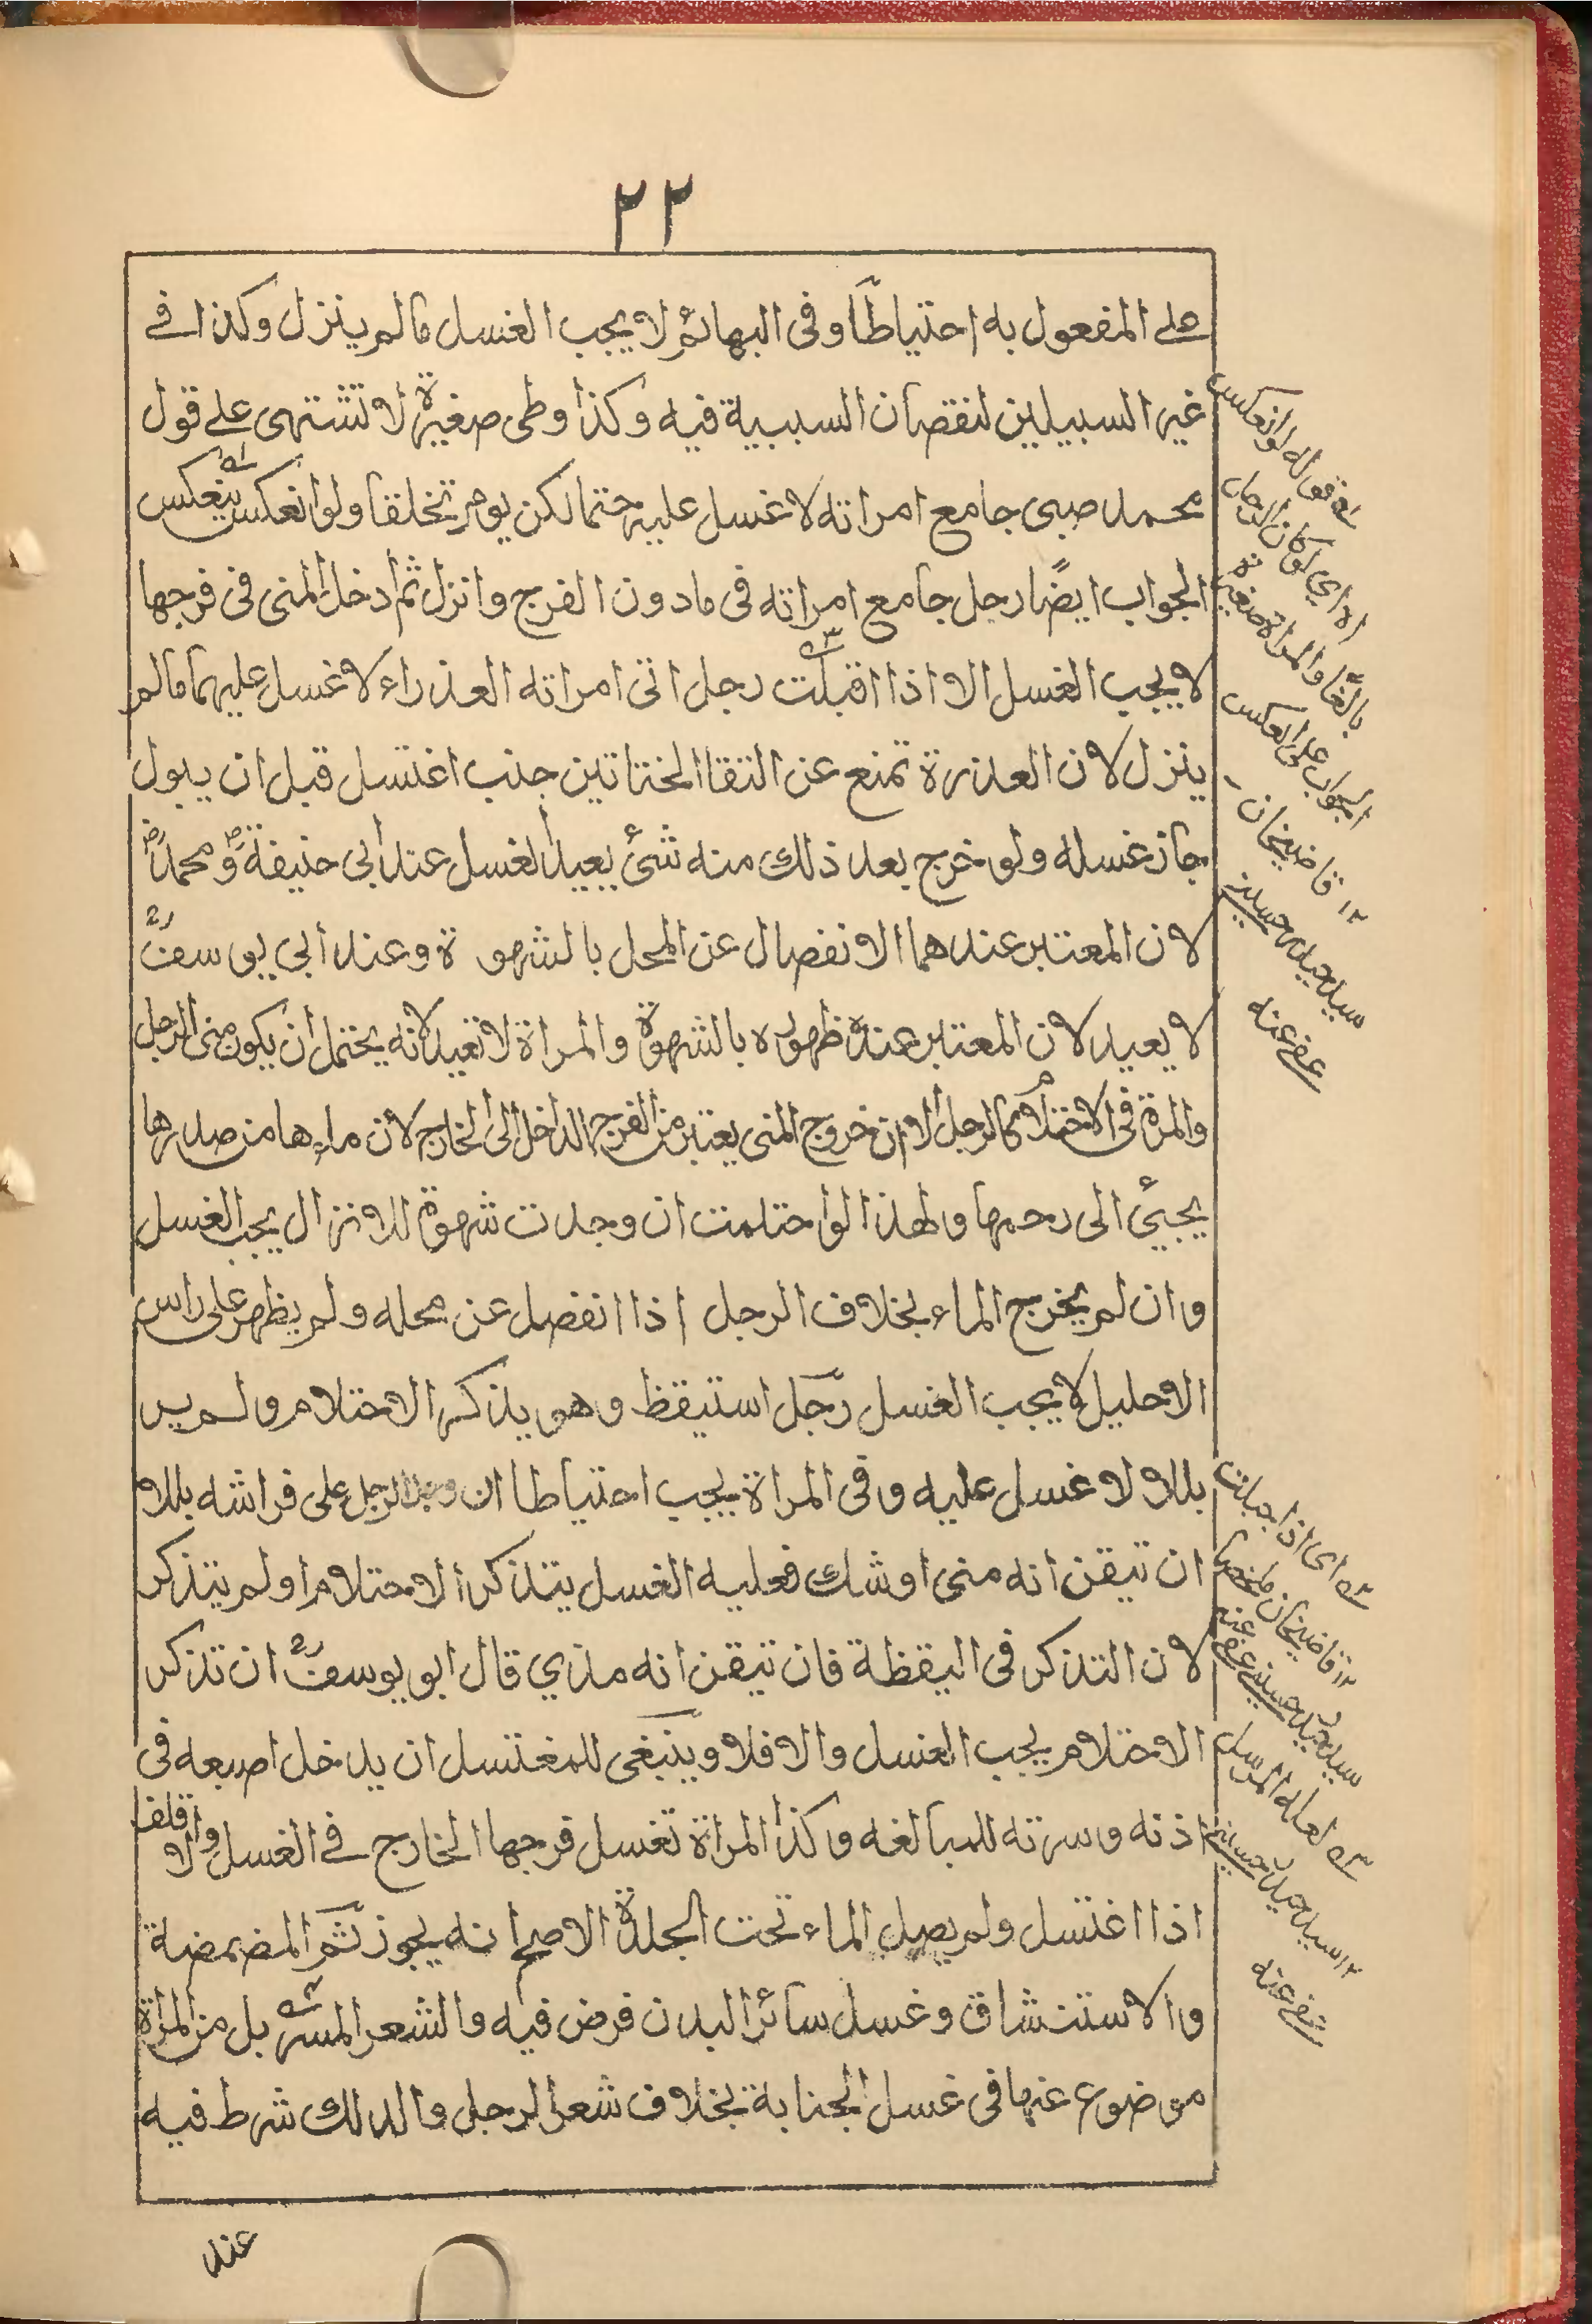 ٢٢
على المفعول به احتياطًا وفى البهائم لا يجب الغسل مالم ينزل وكذا فى
غير السبيلين لنقصان السببية فيه وكذا وطى صغيرة لا تشتهى على قول
محمد صبى جامع امراته لا غسل عليه حتما لكن يومر تخلقا ولو انعكس ينعكس
الجواب ايضًا رجل جامع امراته فى مادون الفرج وانزل ثم ادخل المنى فى فرجها
لا يجب الغسل الا اذا اقبلت رجل اتى امراته العذراء لا غسل عليهما مالم
ينزل لان العذرة تمنع عن التقا الختانين جنب اغتسل قبل ان يبول
جاز غسله ولو خرج بعد ذلك منه شئ يعيد الغسل عند ابى حنيفة ومحمد
لان المعتبر عندهما الانفصال عن المحل بالشهوة وعند ابي يوسف
لا يعيد لان المعتبر عنده ظهوره بالشهوة والمراة لا تعيد لانه يحتمل ان يكون منى الرجل
والمرة فى الاحتلام كالرجل الا ان خروج المنى يعتبر من الفرج الداخل الى الخارج لان ماءها من صدرها
يجيئ الى رحمها ولهذا لو احتلمت ان وجدت شهوة للانزال يجب الغسل
وان لم يخرج الماء بخلاف الرجل اذا انفصل عن محله ولم يظهر على راس
الاحليل لا يجب الغسل رجل استيقظ وهو يذكر الاحتلام ولم ير
بللا لا غسل عليه وفى المراة يجب احتياطا ان وجد الرجل على فراشه بللا
ان تيقن انه منى او شك فعليه الغسل يتذكر الاحتلام او لم يتذكر
لان التذكر فى اليقظة فان تيقن انه مذي قال ابو يوسف ان تذكر
الاحتلام يجب الغسل والا فلا وينبغى للمغتسل ان يدخل اصبعه فى
اذنه وسرته للمبالغه وكذا المراة تغسل فرجها الخارج فى الغسل والاقلف
اذا اغتسل ولم يصل الماء تحت الجلدة الاصح انه يجوز ثم المضمضة
والاستنشاق وغسل سائر البدن فرض فيه والشعر المسربل من المراة
موضوع عنها فى غسل الجنابة بخلاف شعر الرجل والدلك شرط فيه
عند
له قوله لو انعكس
اه اي لو كان الرجل
بالغًا والمراة صغيرة
الجواب على العكس
١٢ قاضيخان
سيد حيدر حسيني
عفى عنه
له اى اذا حبلت
١٢ قاضيخان ملخصا
سيد حيدر حسيني عفى عنه
له لعله المرسل
١٢ سيد حيدر حسيني
عفى عنه